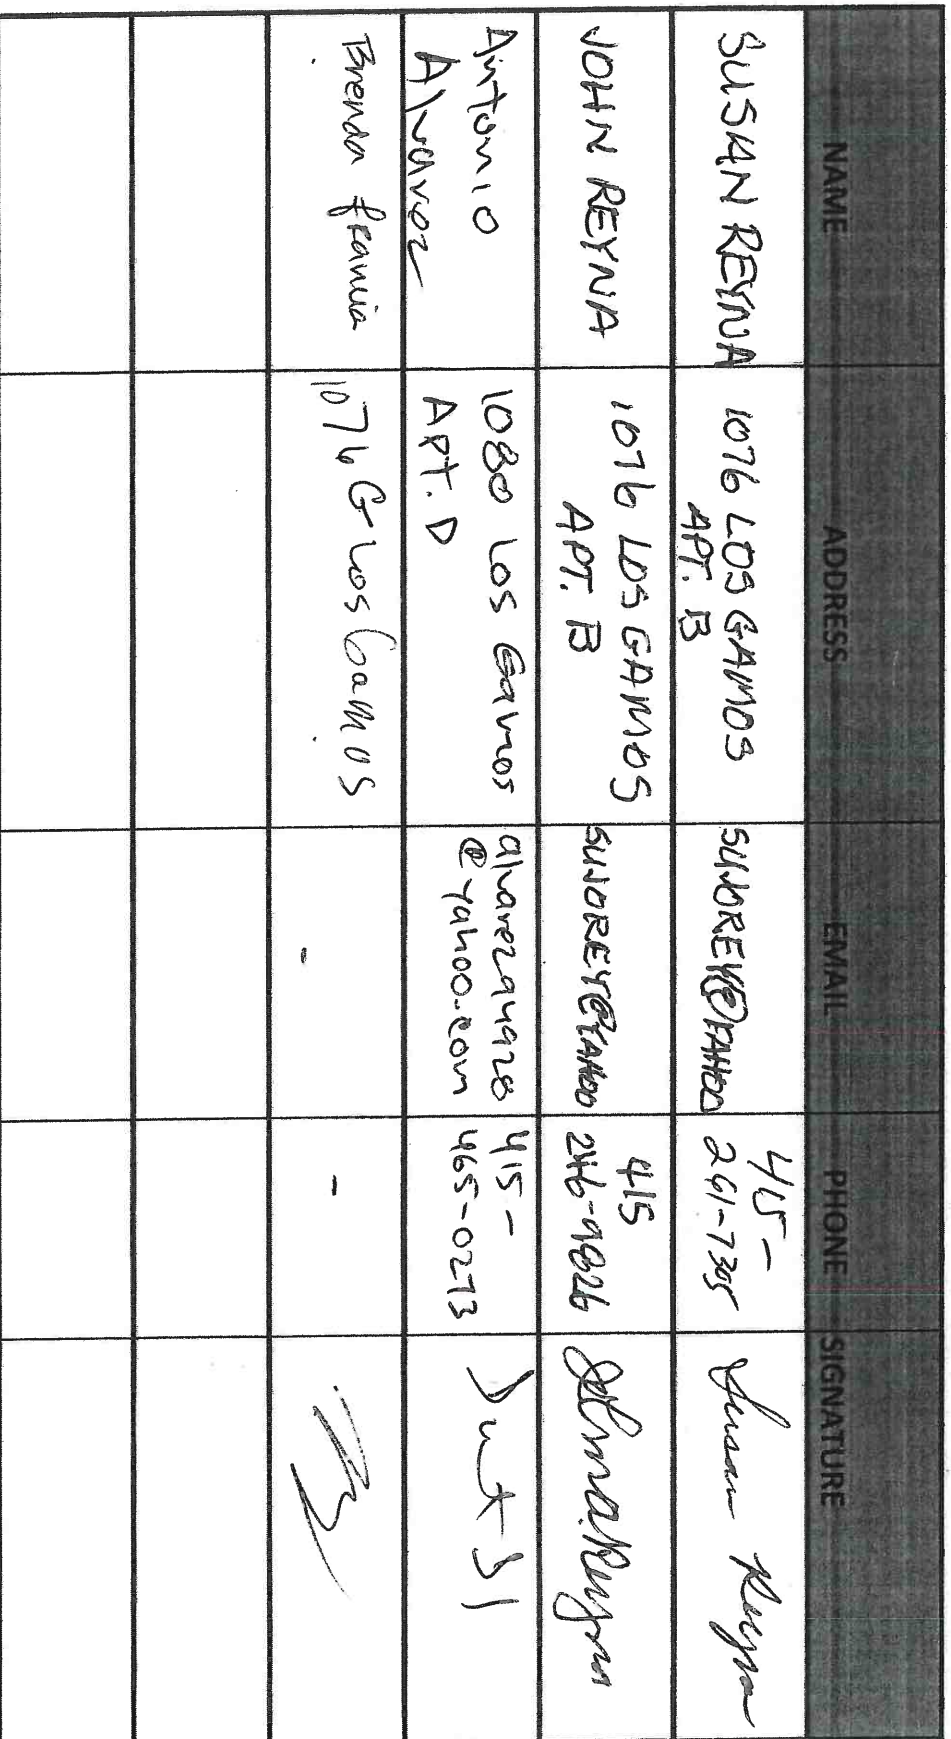 NAME ADDRESS EMAIL PHONE SIGNATURE
SUSAN REYNA
1076 LOS GAMOS
APT. B
SUJOREY@YAHOO
415-
261-7305
Susan Reyna
JOHN REYNA
1076 LOS GAMOS
APT. B
SUJOREY@YAHOO
415
246-9826
Antonio
Alvarez
1080 Los Gamos
APT. D
@yahoo.com
415-
465-0273
Brenda
1076 G Los Gamos
-
-